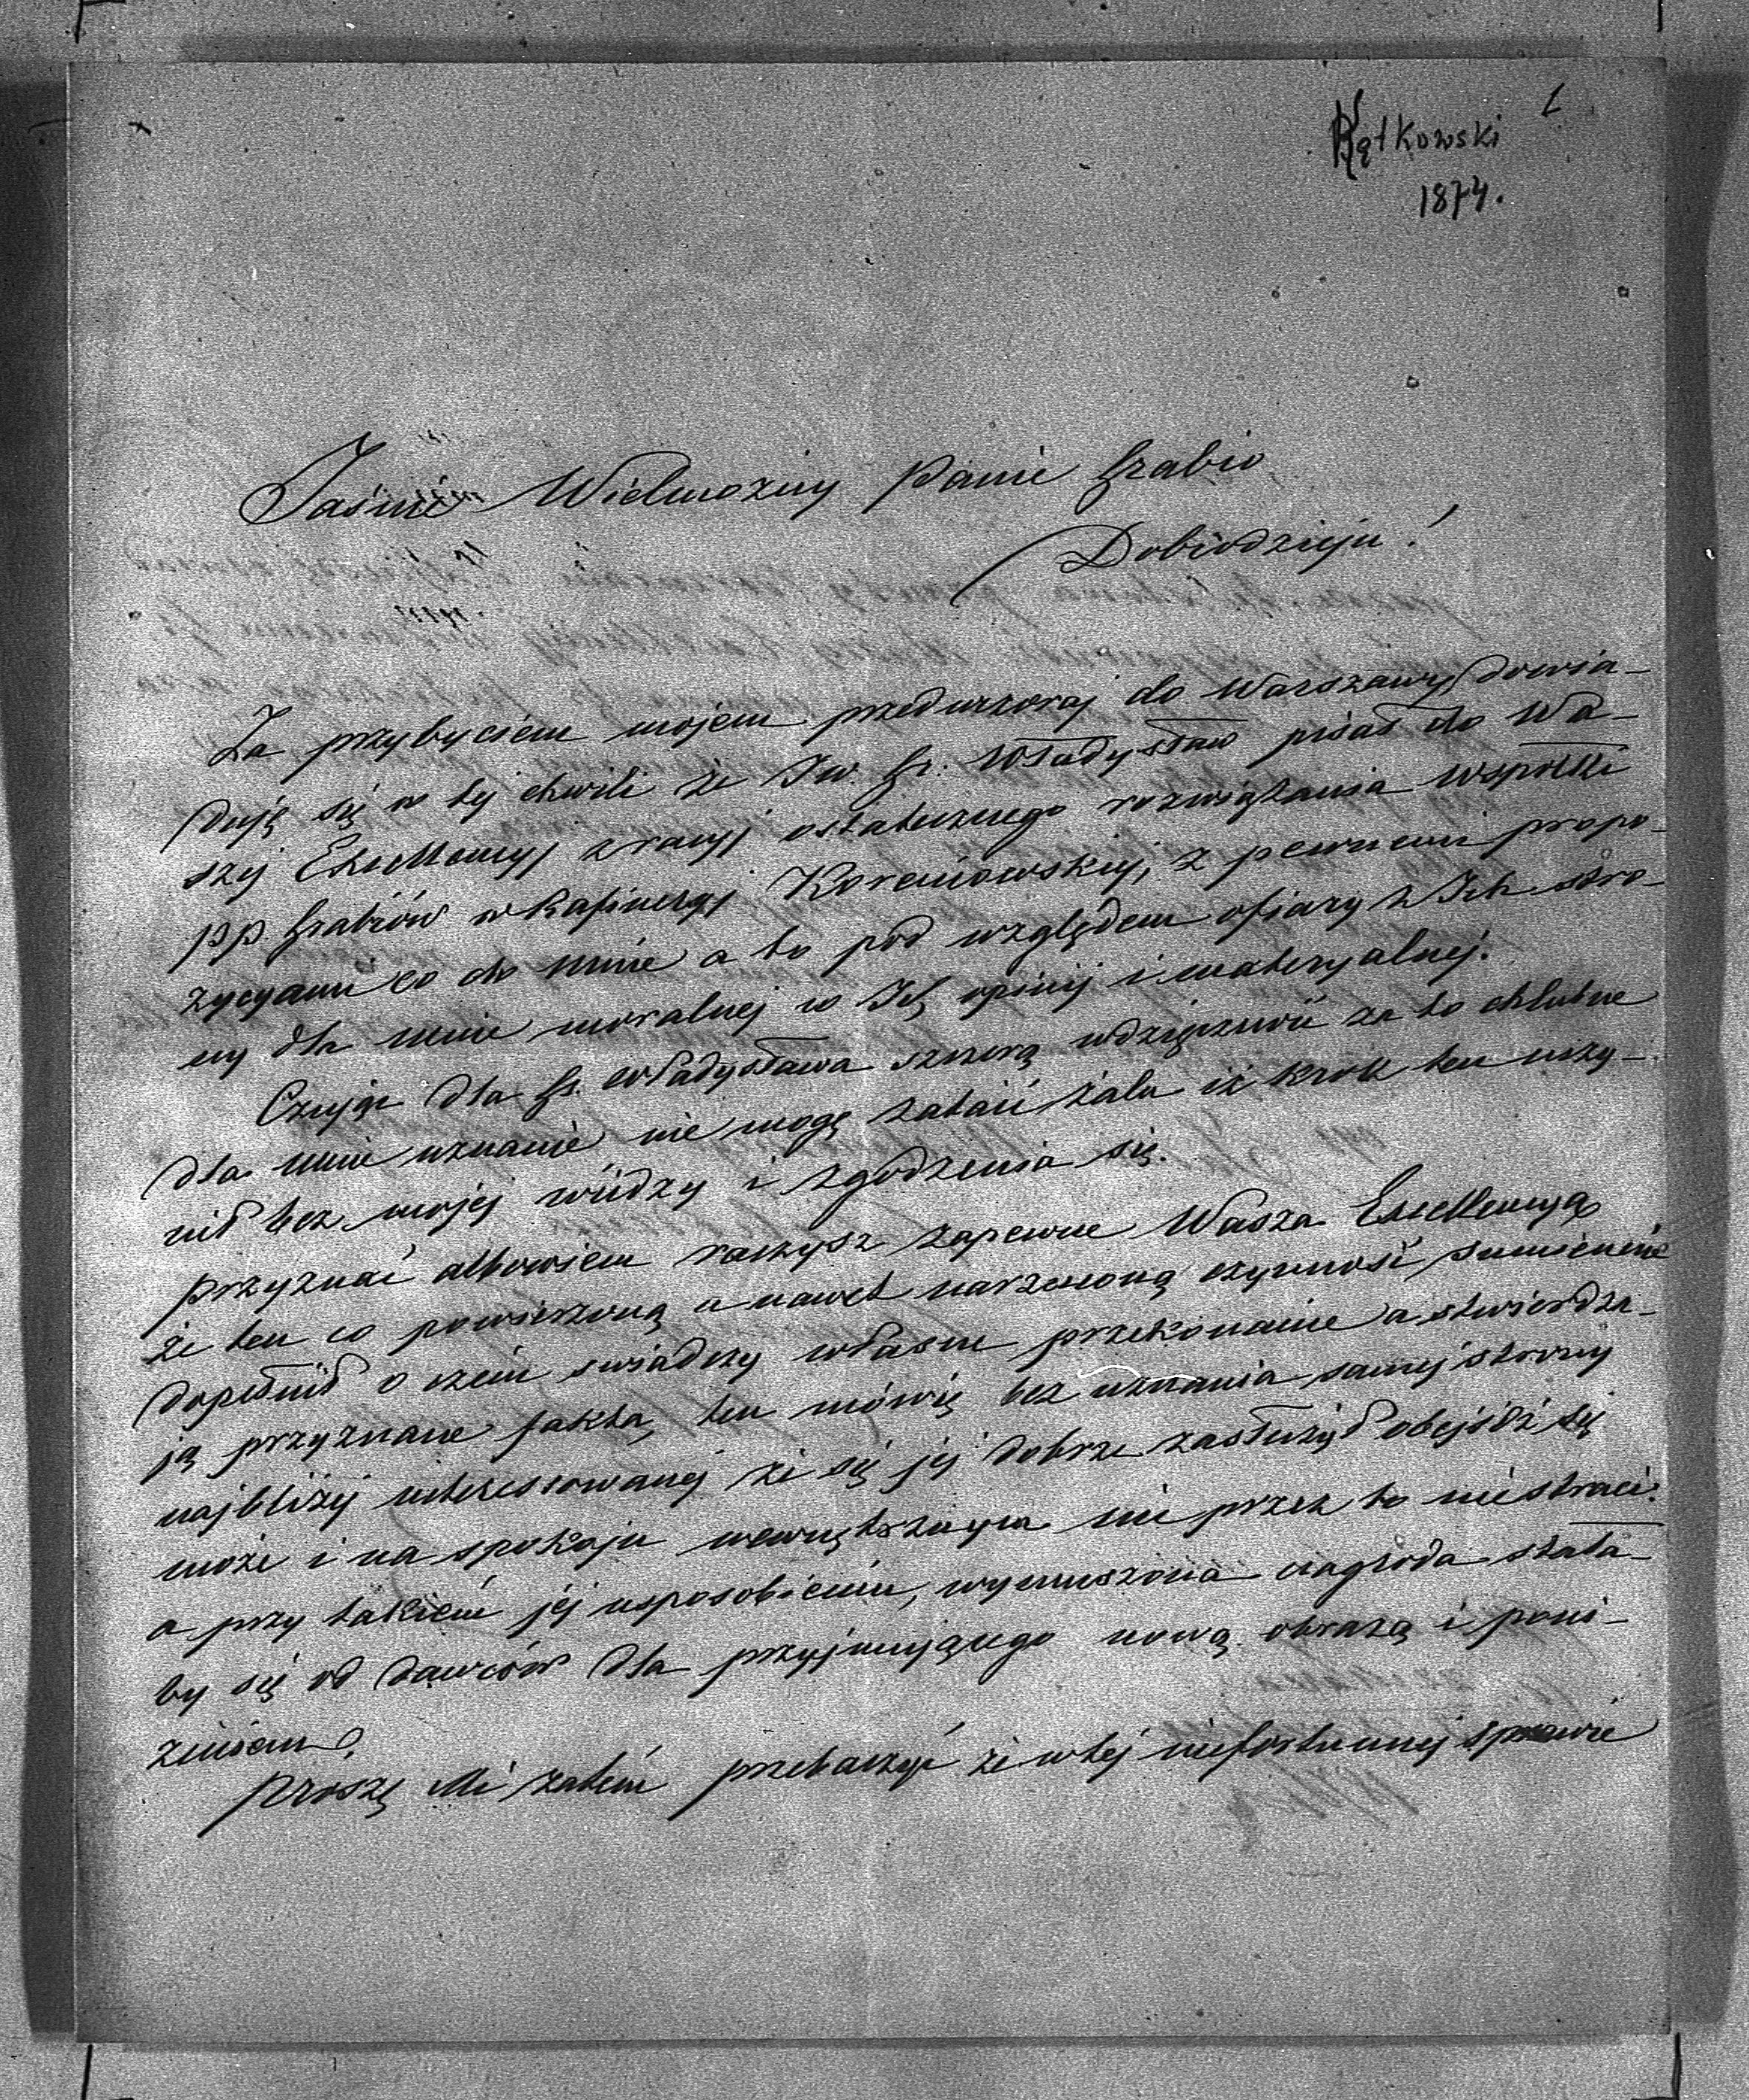 1
Kątkowski
1874.
Jaśnie Wielmożny Panie Hrabio
Dobrodzieju!
Za przybyciem mojem przedwczoraj do Warszawy dowia-
duję się w tej chwili że Jw. Hr. Władysław pisał do Wa-
szej Excellencyj z racyj ostatecznego rozwiązania wspołki
pp Hrabiów w Rafineryj Korcniowskiej, z pewnemi propo-
zycyami co do mnie a to pod względem ofiary z Ich stro-
ny dla mnie moralnej w Ich opinij i materyalnej.
Czując dla Hr. Władysława szczerą wdzięczność za to chlubne
dla mnie uznanie nie mogę zataić żalu iż krok ten uczy-
nił bez mojej wiédzy i zgodzenia się.
Przyznać albowiem raczysz zapewne Wasza Excellencya
że ten co powierzoną a nawet narzuconą czynność sumiennie
dopełnił o czem swiadczy własne przekonanie a stwierdza-
ją przyznane fakta, ten mówię bez uznania samej strony
najbliżej interessowanej że się jej dobrze zasłużył obejśdź się
może i na spokoju wewnętrznym nic przez to nie straci.
a przy takiém jej usposobieniu, wymuszona nagroda stała-
by się od dawców dla przyjmującego nową obrazą i poni-
żeniem.
Proszę Mi zatém przebaczyć że w tej niefortunnej sprawie